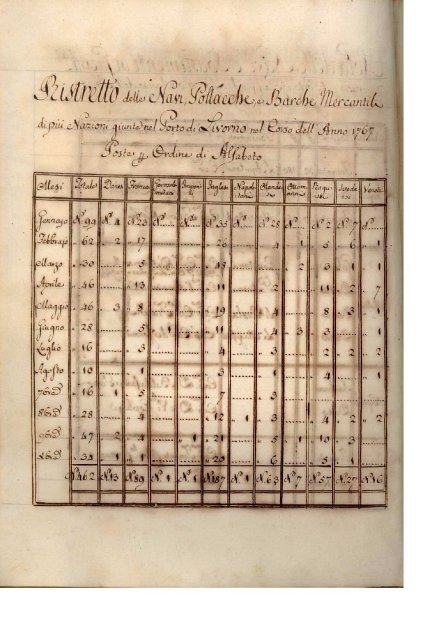 Ristretto delle Navi, Pollacche, e Barche Mercantili
di più Nazioni giunte nel Porto di Livorno nel Corso dell' Anno 1767
Poste p Ordine di Alfabeto
Mesi Totale Danesi Francesi Inglesi Olandesi Svedesi Venete
Gennajo N. 99 N. 4 N. 20 N. N. N. N. 35 N. N. 28 N. N. 2 N. 7 N.
Febbrajo 62 2 17 26 4 1 5 6 1
Marzo 30 5 18 2 3 1
Aprile 46 13 11 2 11 2 7
Maggio 46 3 8 19 4 8 3 1
Giugno 28 5 1 11 4 3 3 1
Luglio 16 3 4 3 2 2 2
Agosto 10 1 3 1 4 1
7bre 16 1 5 7 3
8bre 28 4 12 1 3 4 2 2
9bre 47 2 4 1 21 5 1 10 3
Xbre 34 1 1 20 6 5 1
N. 462 N. 13 N. 89 N. 1 N. 1 N. 187 N. 1 N. 63 N. 7 N. 57 N. 27 N. 16